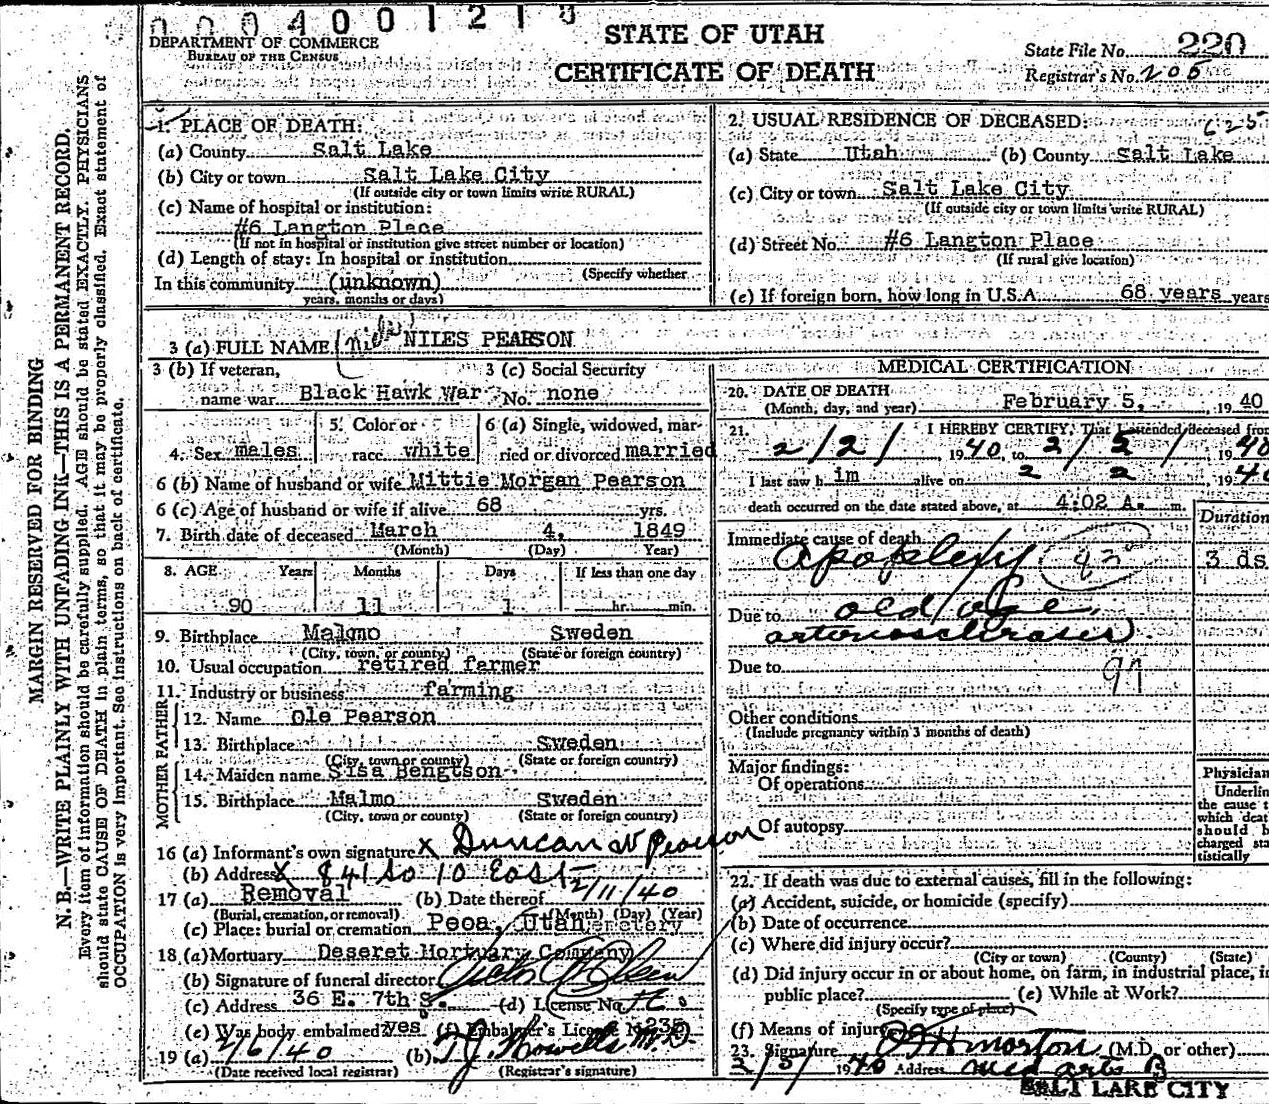 0004001218
DEPARTMENT OF COMMERCE
BUREAU OF THE CENSUS
STATE OF UTAH
CERTIFICATE OF DEATH
State File No. 220
Registrar's No. 205
MARGIN RESERVED FOR BINDING
N. B.—WRITE PLAINLY WITH UNFADING INK—THIS IS A PERMANENT RECORD.
Every item of information should be carefully supplied. AGE should be stated EXACTLY. PHYSICIANS
should state CAUSE OF DEATH in plain terms, so that it may be properly classified. Exact statement of
OCCUPATION is very important. See instructions on back of certificate.
1. PLACE OF DEATH:
(a) County Salt Lake
(b) City or town Salt Lake City
(If outside city or town limits write RURAL)
(c) Name of hospital or institution:
#6 Langton Place
(If not in hospital or institution give street number or location)
(d) Length of stay: In hospital or institution
(Specify whether
In this community (unknown)
years, months or days)
2. USUAL RESIDENCE OF DECEASED:
625
(a) State Utah (b) County Salt Lake
(c) City or town Salt Lake City
(If outside city or town limits write RURAL)
(d) Street No. #6 Langton Place
(If rural give location)
(e) If foreign born, how long in U.S.A. 68 years years
3 (a) FULL NAME NILES PEARSON
3 (b) If veteran, 3 (c) Social Security
name war Black Hawk War No. none
4. Sex males 5. Color or race white 6 (a) Single, widowed, married or divorced married
6 (b) Name of husband or wife Mittie Morgan Pearson
6 (c) Age of husband or wife if alive 68 yrs.
7. Birth date of deceased March 4, 1849
(Month) (Day) Year)
8. AGE Years Months Days If less than one day
90 11 1 hr. min.
9. Birthplace Malmo Sweden
(City, town, or county) (State or foreign country)
10. Usual occupation retired farmer
11. Industry or business farming
FATHER
12. Name Ole Pearson
13. Birthplace Sweden
(City, town or county) (State or foreign country)
MOTHER
14. Maiden name Sisa Bengtson
15. Birthplace Malmo Sweden
(City, town or county) (State or foreign country)
16 (a) Informant's own signature x Duncan W Pearson
(b) Address x 841 So 10 East
17 (a) Removal (b) Date thereof 2/11/40
(Burial, cremation, or removal) (Month) (Day) (Year)
(c) Place: burial or cremation Peoa, Utah cemetery
18 (a) Mortuary Deseret Mortuary Company
(b) Signature of funeral director
(c) Address 36 E. 7th S. (d) License No.
(e) Was body embalmed? yes (f) Embalmer's License No. 235
19 (a) 2/6/40 (b) T.J. Howells M.D.
(Date received local registrar) (Registrar's signature)
MEDICAL CERTIFICATION
20. DATE OF DEATH
(Month, day, and year) February 5, 1940
21. I HEREBY CERTIFY, That I attended deceased from
2/2/ 1940, to 2/5/ 1940
I last saw h im alive on 2 2, 1940
death occurred on the date stated above, at 4:02 A. m.
Duration
Immediate cause of death
Apoplexy 83 3 ds
Due to old age,
arteriosclerosis
Due to 97
Other conditions
(Include pregnancy within 3 months of death)
Major findings:
Of operations
Of autopsy
Physician
Underlin
the cause t
which deat
should b
charged sta
tistically
22. If death was due to external causes, fill in the following:
(a) Accident, suicide, or homicide (specify)
(b) Date of occurrence
(c) Where did injury occur?
(City or town) (County) (State)
(d) Did injury occur in or about home, on farm, in industrial place, in
public place? (e) While at Work?
(Specify type of place)
(f) Means of injury
23. Signature Morton (M.D. or other)
2/5/ 1940 Address Med arts B
SALT LAKE CITY